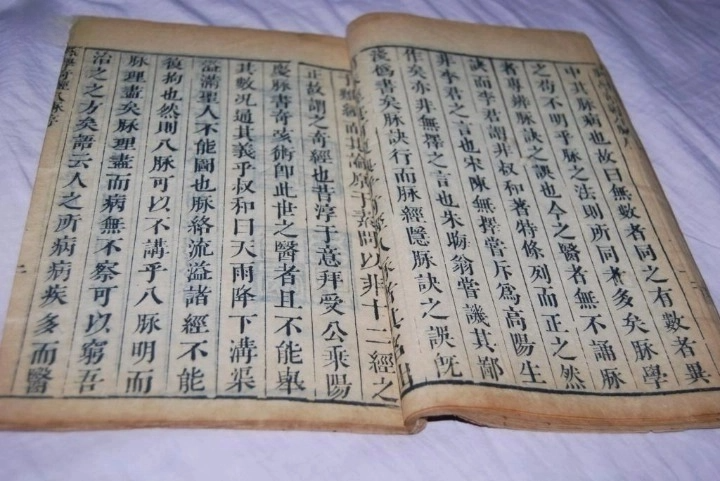 中其脉病也故曰無數者同之有數者異
不明乎脉之法則所同者多矣脉學
者專辨脉訣之誤也今之醫者無不誦脉
訣而李君謂非叔和著特條列而正之然
非李君之言也宋陳無擇嘗斥爲高陽生
作矣亦非無擇之言也朱晦翁嘗譏其鄙
淺僞書矣脉訣行而脉經隱脉訣之誤旣
而其論原于素問以非十二經之
正故謂之奇經也昔淳于意拜受公乘陽
慶脉書奇弦術卽此世之醫者且不能擧
其數況通其義乎叔和曰天雨降下溝渠
溢滿聖人不能圖也脉絡流溢諸經不能
復拘也然則八脉可以不講乎八脉明而
脉理盡矣脉理盡而病無不察可以窮吾
治之之方矣語云人之所病病疾多而醫